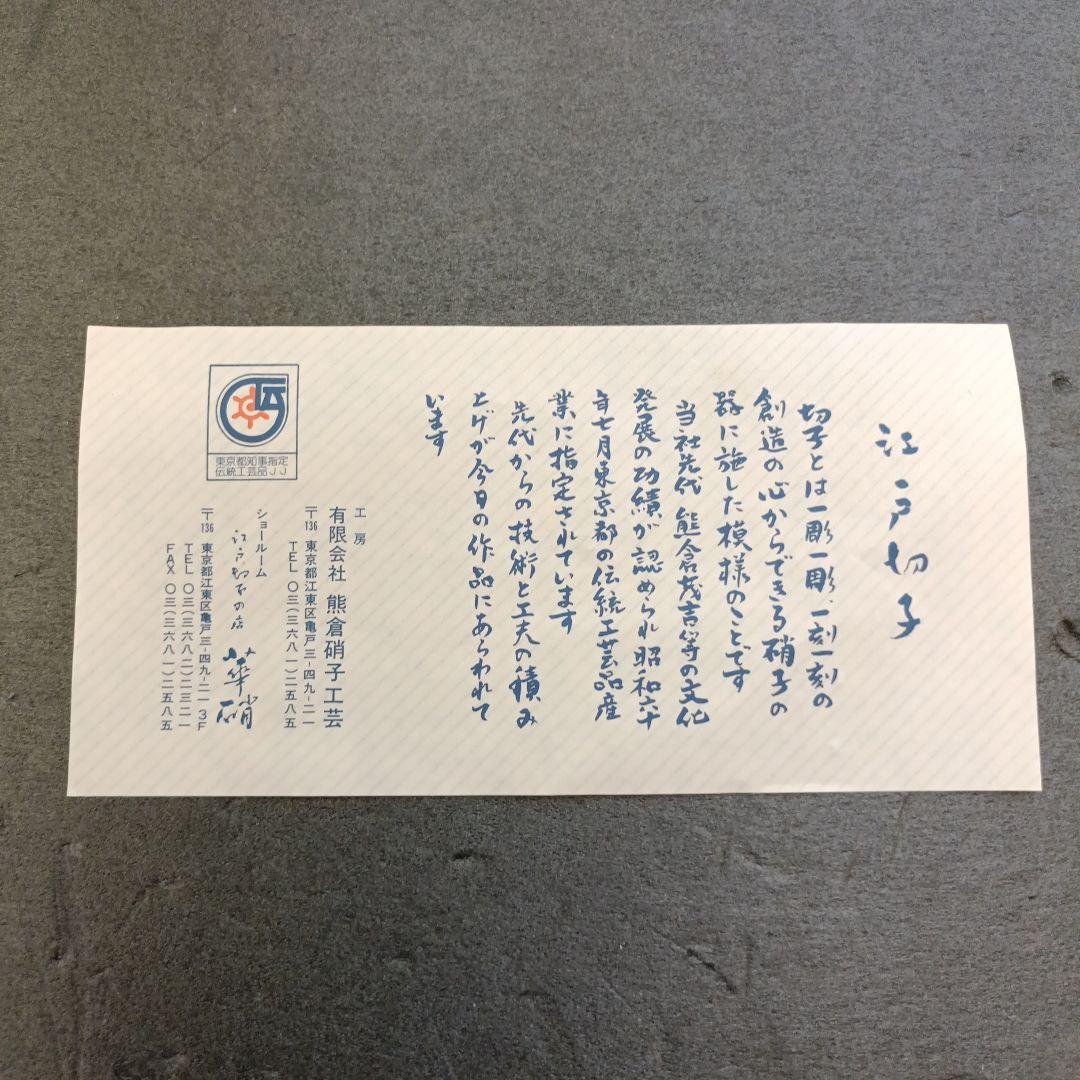 江戸切子
切子とは一彫一彫、一刻一刻の
創造の心からできる硝子の
器に施した模様のことです
当社先代 熊倉茂吉等の文化
発展の功績が認められ昭和六十
年七月東京都の伝統工芸品産
業に指定されています
先代からの技術と工夫の積み
上げが今日の作品にあらわれて
います
伝
東京都知事指定
伝統工芸品JJ
工房
有限会社 熊倉硝子工芸
〒136 東京都江東区亀戸三-四九-二一
TEL 〇三(三六八一)二五八五
ショールーム
江戸切子の店 華硝
〒136 東京都江東区亀戸三-四九-二一 3F
TEL 〇三(三六八二)二三二一
FAX 〇三(三六八一)二五八五